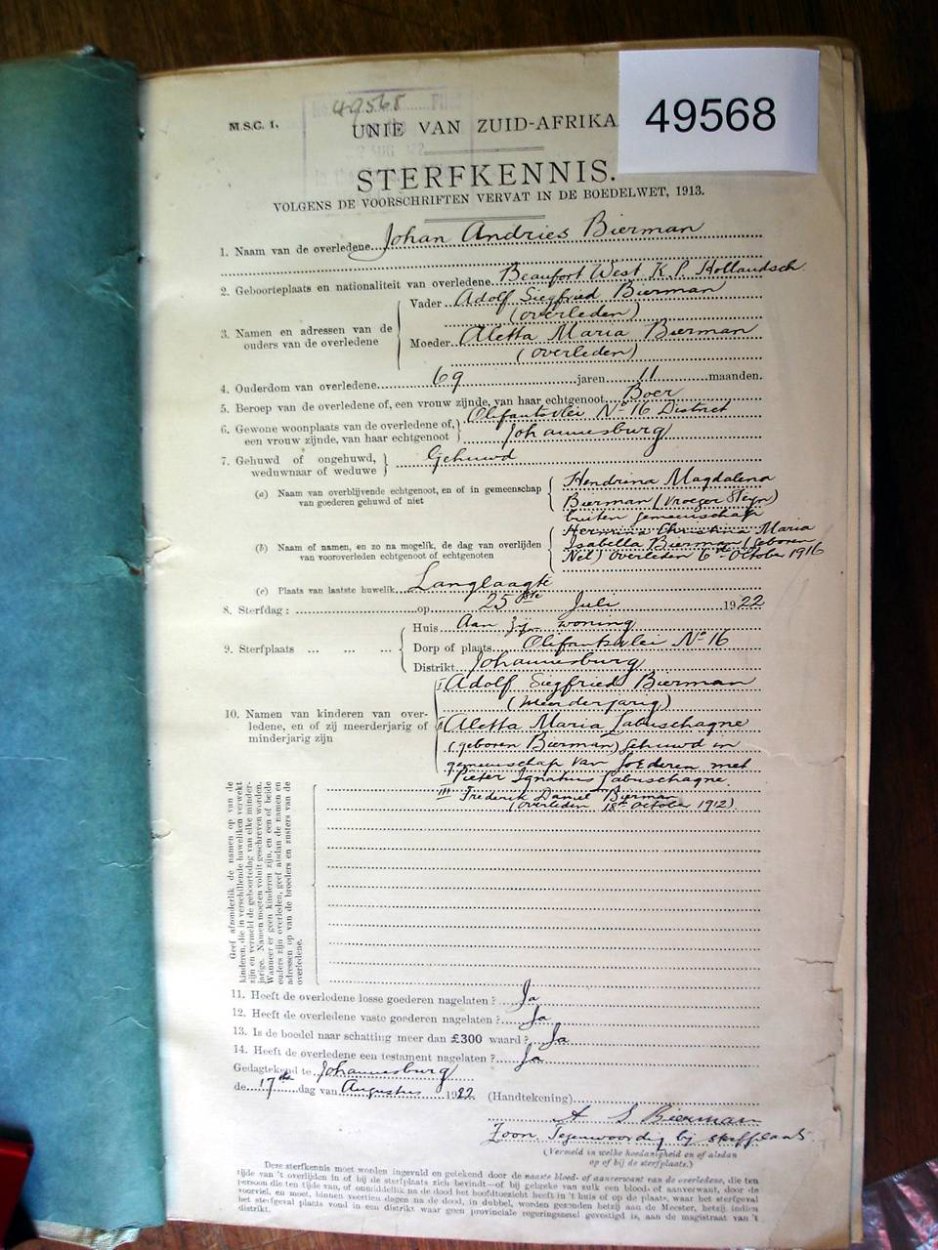 49568
49568
M.S.C. 1.
UNIE VAN ZUID-AFRIKA
STERFKENNIS.
VOLGENS DE VOORSCHRIFTEN VERVAT IN DE BOEDELWET, 1913.
1. Naam van de overledene Johan Andries Bierman
2. Geboorteplaats en nationaliteit van overledene Beaufort West K. P. Hollandsch
3. Namen en adressen van de ouders van de overledene
Vader Adolf Siegfried Bierman
(overleden)
Moeder Aletta Maria Bierman
(overleden)
4. Ouderdom van overledene 69 jaren 11 maanden.
5. Beroep van de overledene of, een vrouw zijnde, van haar echtgenoot Boer
6. Gewone woonplaats van de overledene of, een vrouw zijnde, van haar echtgenoot
Olifantsvlei No 16 District
Johannesburg
7. Gehuwd of ongehuwd, weduwnaar of weduwe Gehuwd
(a) Naam van overblijvende echtgenoot, en of in gemeenschap van goederen gehuwd of niet
Hendrina Magdalena
Bierman (vroeger Steyn)
buiten gemeenschap
(b) Naam of namen, en zo na mogelik, de dag van overlijden van vooroverleden echtgenoot of echtgenoten
Christina Maria
Isabella Bierman (geboren
Nel) overleden 6de October 1916
(c) Plaats van laatste huwelik Langlaagte
8. Sterfdag: op 25ste Juli 1922
9. Sterfplaats
Huis Aan zijn woning
Dorp of plaats Olifantsvlei No 16
Distrikt Johannesburg
10. Namen van kinderen van overledene, en of zij meerderjarig of minderjarig zijn
I Adolf Siegfried Bierman
(meerderjarig)
II Aletta Maria Labuschagne
(geboren Bierman) Gehuwd in
gemeenschap van Goederen met
Pieter Ignatius Labuschagne
III Frederik Daniel Bierman
(overleden 18de October 1912)
Geef afzonderlik de namen op van de
kinderen, die in verschillende huweliken verwekt
zijn en vermeld de geboortedag van elke minder-
jarige. Namen moeten voluit geschreven worden.
Wanneer er geen kinderen zijn, en een of beide
ouders zijn overleden, geef alsdan de namen en
adressen op van de broeders en zusters van de
overledene.
11. Heeft de overledene losse goederen nagelaten? Ja
12. Heeft de overledene vaste goederen nagelaten? Ja
13. Is de boedel naar schatting meer dan £300 waard? Ja
14. Heeft de overledene een testament nagelaten? Ja
Gedagtekend te Johannesburg
de 17de dag van Augustus 1922
(Handtekening)
A S Bierman
Zoon Tegenwoordig bij sterfplaats
(Vermeld in welke hoedanigheid en of alsdan
op of bij de sterfplaats.)
Deze sterfkennis moet worden ingevuld en getekend door de naaste bloed- of aanverwant van de overledene, die ten
tijde van 't overlijden in of bij de sterfplaats zich bevindt—of bij gebreke van zulk een bloed- of aanverwant, door de
persoon die ten tijde van, of onmiddellik na de dood het hoofdtoezicht heeft in 't huis of op de plaats, waar het sterfgeval
voorviel, en moet, binnen veertien dagen na de dood, in dubbel, worden gezonden hetzij aan de Meester, hetzij indien
het sterfgeval plaats vond in een distrikt waar geen provinciale regeringszetel gevestigd is, aan de magistraat van 't
distrikt.